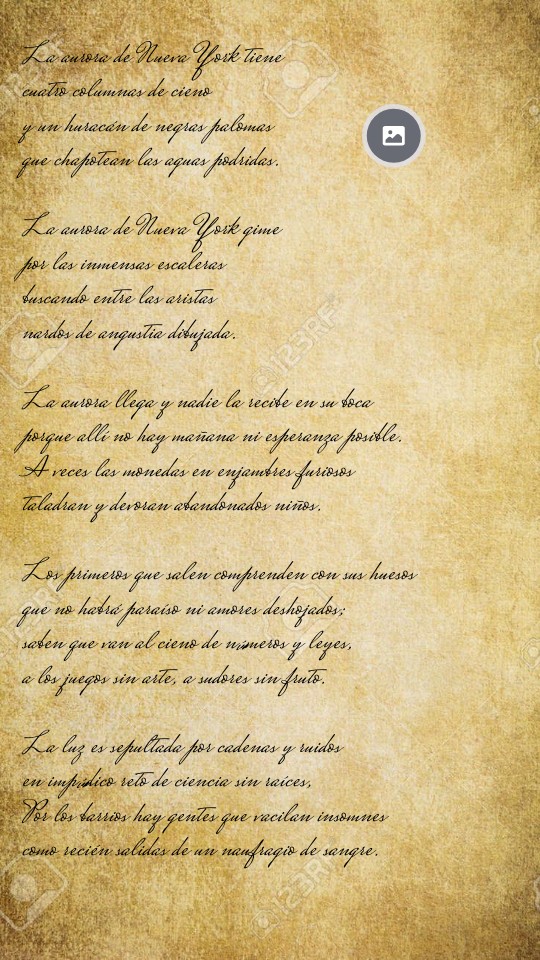 La aurora de Nueva York tiene
cuatro columnas de cieno
y un huracán de negras palomas
que chapotean las aguas podridas.
La aurora de Nueva York gime
por las inmensas escaleras
buscando entre las aristas
nardos de angustia dibujada.
La aurora llega y nadie la recibe en su boca
porque allí no hay mañana ni esperanza posible.
A veces las monedas en enjambres furiosos
taladran y devoran abandonados niños.
Los primeros que salen comprenden con sus huesos
que no habrá paraíso ni amores deshojados;
saben que van al cieno de números y leyes,
a los juegos sin arte, a sudores sin fruto.
La luz es sepultada por cadenas y ruidos
en impúdico reto de ciencia sin raíces,
Por los barrios hay gentes que vacilan insomnes
como recién salidas de un naufragio de sangre.
123RF